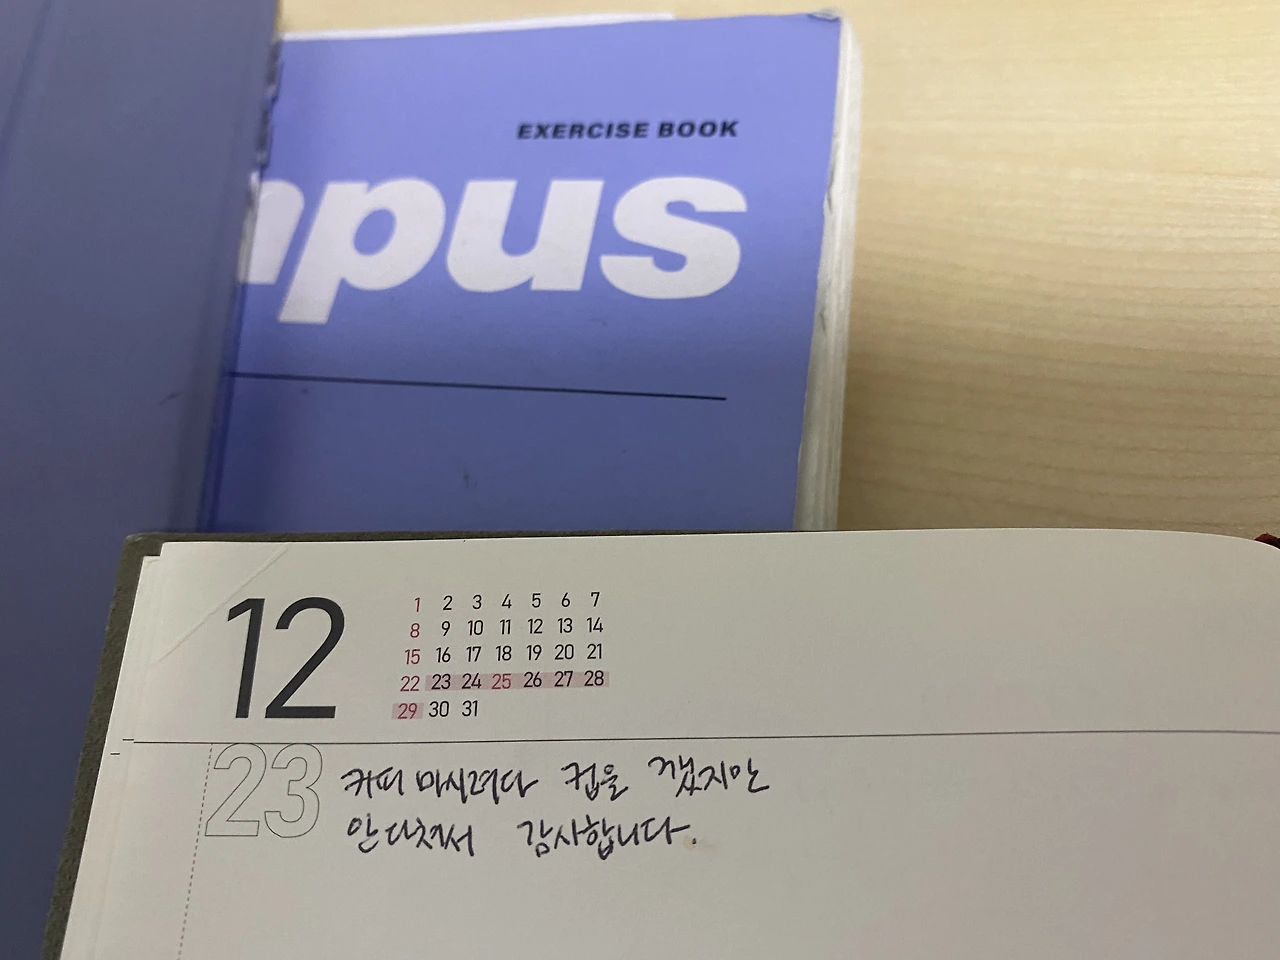 EXERCISE BOOK
mpus
12
1 2 3 4 5 6 7
8 9 10 11 12 13 14
15 16 17 18 19 20 21
22 23 24 25 26 27 28
29 30 31
23
커피 마시려다 컵을 깼지만
안다쳐서 감사합니다.